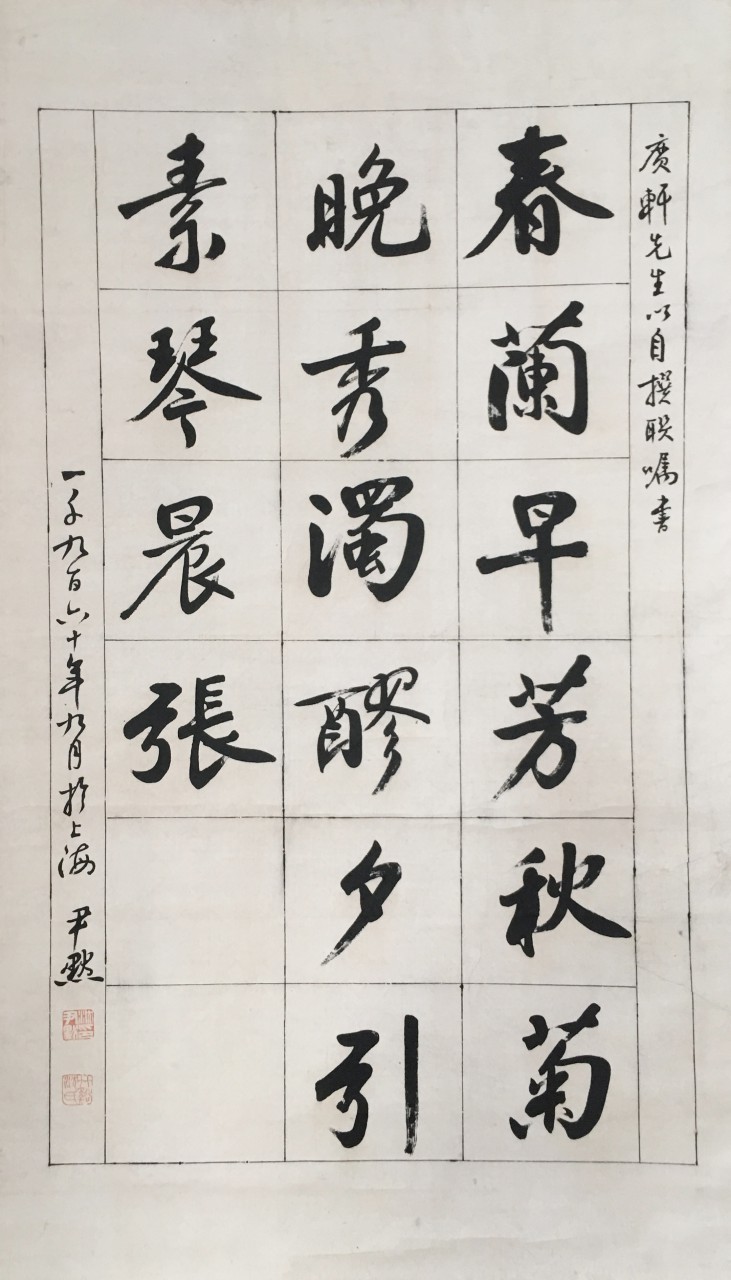 广軒先生以自撰联嘱书
春蘭早芳秋菊
晚秀濁醪夕引
素琴晨張
一千九百六十年九月於上海 尹默